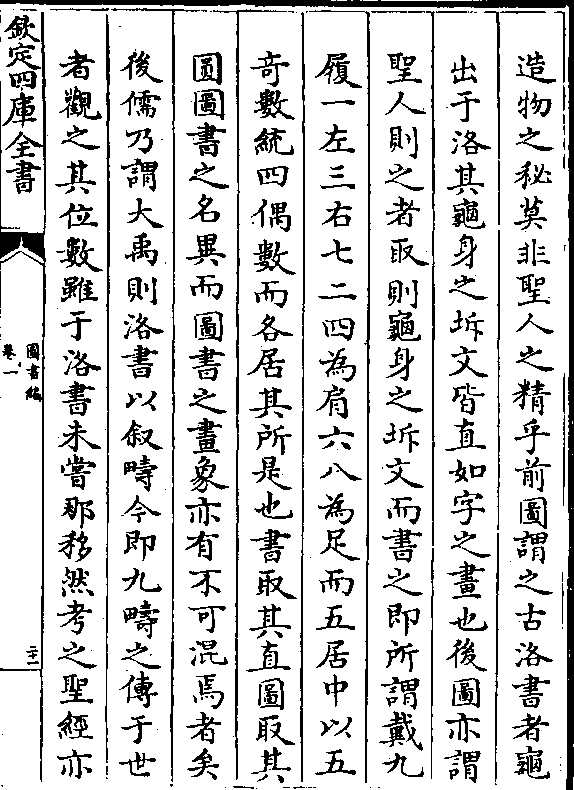 造物之秘莫非聖人之精乎前圖謂之古洛書者龜
出于洛其龜身之坼文皆直如字之畫也後圖亦謂
聖人則之者取則龜身之坼文而書之即所謂戴九
履一左三右七二四為肩六八為足而五居中以五
竒數統四偶數而各居其所是也書取其直圖取其
圓圖書之名異而圖書之畫象亦有不可混焉者矣
後儒乃謂大禹則洛書以叙疇今即九疇之傳于世
者觀之其位數雖于洛書未嘗那移然考之聖經亦
欽定四庫全書
圖書編
卷一
二十一